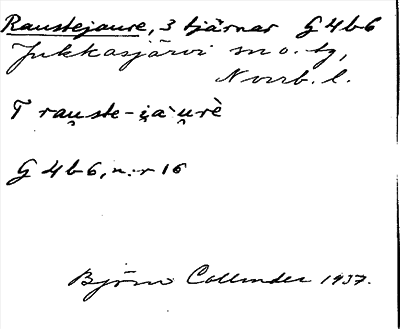 Raustejaure, 3 tjärnar G 4 b 6
Jukkasjärvi sn o. tg,
Norrb. l.
T rau̯ste-i̯ȧ̀u̯rè
G 4 b 6, n:r 16
Björn Collinder 1937.